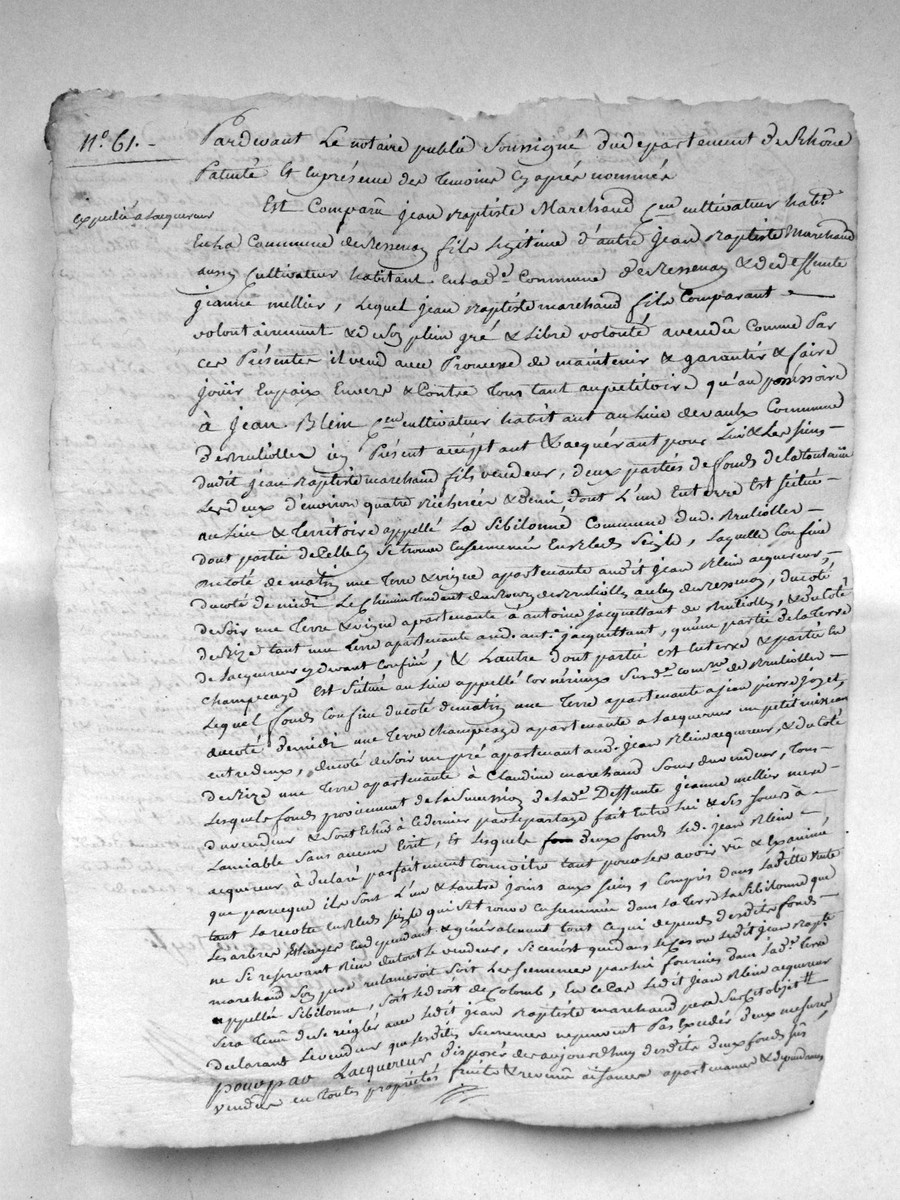 N.º 61.-
Pardevant Le notaire public Soussigné du departement du Rhône
Patenté & En présence des Temoins Cy après nommés
Expedié a Lacquereur
Est Comparû jean Baptiste Marchand Cen cultivateur habt
En La Commune de Bessenay fils Legitime d'autre Jean Baptiste Marchand
aussy Cultivateur habitant En lad.e Commune de Bessenay & de deffunte
jeanne mellier, Lequel jean Baptiste marchand fils Comparant
volontairement & de son plein gré & Libre volonté a vendû Comme Par
ces Présentes il vend avec Promesse de maintenir & garantir & faire
joüir En paix Envers & Contre Tous tant au petitoire qu'au possessoire
à jean Blein Cen cultivateur habitant au Lieu de vaulx Commune
de Brulioller icy Présent acceptant & acquérant pour Lui & Les Siens
dudit jean Baptiste marchand fils vendeur, deux parties de fonds de la Contenüe
Les deux d'environ quatre Bicherées & demi dont L'un En terre Est Scitué
au Lieu & Territoire appellé La Sibilonne Commune dud. Brulioller
dont partie de Celle Cy Se trouve Ensemencée En Bled Seigle, Laquelle Confine
du coté de matin une Terre & vigne apartenante audit Jean Blein acquereur,
du coté de midi Le Chemin Tendant du Bourg de Brulioller au de Bessenay, du coté
de Soir une Terre & vigne apartenante à antoine jacquettant de Brulioller, & du Coté
de Bize tant une Terre apartenante aud. ant. jacquettant, qu'une partie de la terre
de Lacquereur cy devant Confiné, & L'autre dont partie est En terre & partie En
Champeage Est Scitué au Lieu appellé Cornérieux Susd.e Comne de Brulioller
Lequel fonds Confine du coté de matin une Terre apartenante a jean pierre
du coté de midi une Terre champeage apartenante a Lacquereur un petit
entre deux, du coté de Soir un pré apartenant aud. jean Blein acquereur, & du Coté
de Bize une Terre apartenante à Claudine marchand Soeur du vendeur, Tous
Lesquels fonds proviennent de la Succession de lad.e Deffunte jeanne mellier mere
du vendeur & Sont Echus à ce dernier par le partage fait Entre lui & Ses Soeurs à
L'amiable Sans aucun Ecrit, Et Lesquels deux fonds led. jean Blein
acquereur à declaré parfaitement Connoitre tant pour Les avoir vû & Examiné
que parceque ils Sont L'un & L'autre joins aux Siens, Compris dans Ladite vente
tant La recolte En Bled Seigle qui Se trouve Ensemencée dans la Terre La Sibilonne que
Les arbres En dependant & généralement tout ce qui depend desdits fonds
ne Se reservant Rien du tout Le vendeur, Si ce n'est que dans le Cas ou Ledit Jean Bapte
marchand Son pere reclameroit Soit Les Semences par lui fournies dans lad.e Terre
appellée Sibilonne, Soit le droit de Colomb, En ce Cas Ledit Jean Blein acquereur
Sera Tenu de Se reigler avec Ledit jean Baptiste marchand pere Sur Cet objet
declarant Le vendeur que lesdites Semences ne peuvent Pas Excéder deux mesures
pour par Lacquereur disposer des aujourdhuy desdits deux fonds
vendus en toutes propriétés fruits & revenus aisances apartenances & dependances